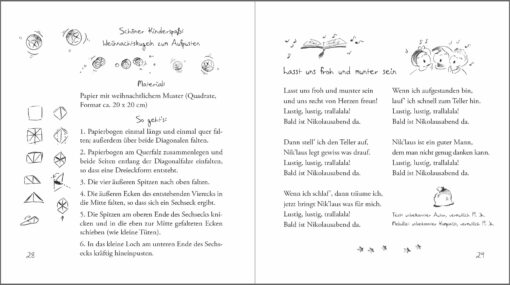 Schöner Kinderspaß!
Weihnachtskugeln zum Aufpusten
Material:
Papier mit weihnachtlichem Muster (Quadrate,
Format ca. 20 x 20 cm)
So geht's:
1. Papierbogen einmal längs und einmal quer fal-
ten; außerdem über beide Diagonalen falten.
2. Papierbogen am Querfalz zusammenlegen und
beide Seiten entlang der Diagonalfalze einfalten,
so dass eine Dreieckform entsteht.
3. Die vier äußeren Spitzen nach oben falten.
4. Die äußeren Ecken des entstehenden Vierecks in
die Mitte falten, so dass sich ein Sechseck ergibt.
5. Die Spitzen am oberen Ende des Sechsecks kni-
cken und in die eben zur Mitte gefalteten Ecken
schieben (wie kleine Tüten).
6. In das kleine Loch am unteren Ende des Sechs-
ecks kräftig hineinpusten.
28
Lasst uns froh und munter sein
Lasst uns froh und munter sein
und uns recht von Herzen freun!
Lustig, lustig, trallalala!
Bald ist Nikolausabend da.
Dann stell' ich den Teller auf,
Nik'laus legt gewiss was drauf.
Lustig, lustig, trallalala!
Bald ist Nikolausabend da.
Wenn ich schlaf', dann träume ich,
jetzt bringt Nik'laus was für mich.
Lustig, lustig, trallalala!
Bald ist Nikolausabend da.
Wenn ich aufgestanden bin,
lauf' ich schnell zum Teller hin.
Lustig, lustig, trallalala!
Bald ist Nikolausabend da.
Nik'laus ist ein guter Mann,
dem man nicht genug danken kann.
Lustig, lustig, trallalala!
Bald ist Nikolausabend da.
Text: unbekannter Autor, vermutlich 19. Jh.
Melodie: unbekannter Komponist, vermutlich 19. Jh.
29